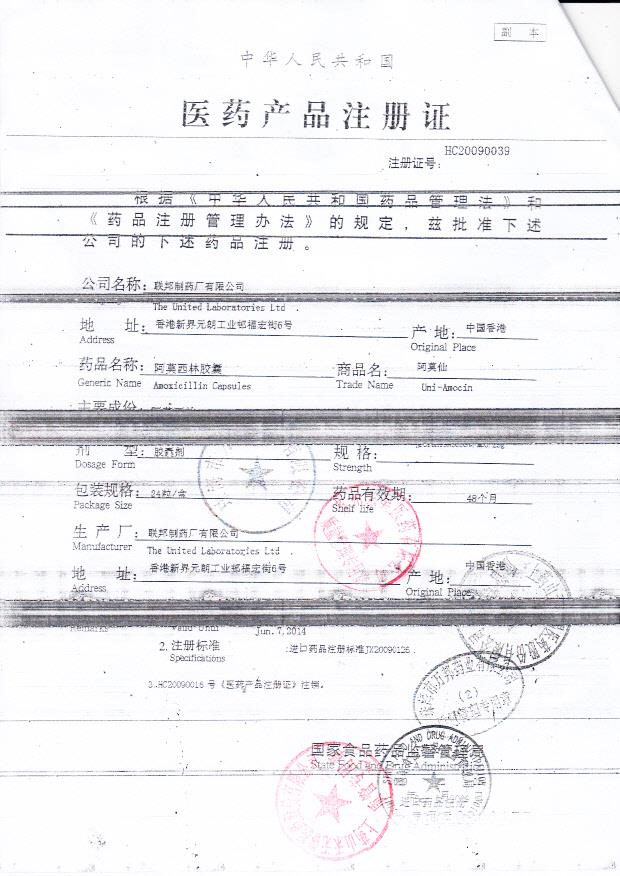 副 本
中华人民共和国
医药产品注册证
HC20090039
注册证号:
根据《中华人民共和国药品管理法》和
《药品注册管理办法》的规定，兹批准下述
公司的下述药品注册。
公司名称: 联邦制药厂有限公司
The United Laboratories Ltd .
地 址: 香港新界元朗工业邨福宏街6号 产 地: 中国香港
Address Original Place
药品名称: 阿莫西林胶囊 商品名: 阿莫仙
Generic Name Amoxicillin Capsules Trade Name Uni-Amocin
主要成份
剂 型: 胶囊剂 规 格:
Dosage Form Strength
包装规格: 24粒/盒 药品有效期: 48个月
Package Size Shelf life
生 产 厂: 联邦制药厂有限公司
Manufacturer The United Laboratories Ltd .
地 址: 香港新界元朗工业邨福宏街6号 产 地: 中国香港
Address Original Place
Remarks Valid Until Jun. 7, 2014
2. 注册标准 :进口药品注册标准JX20090126 .
Specifications
3.HC20090016 号《医药产品注册证》注销。
(2)
国家食品药品监督管理局
State Food and Drug Administration